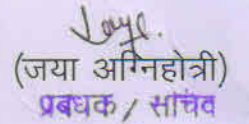 Jaya.
(जया अग्निहोत्री)
प्रबधक / सचिव